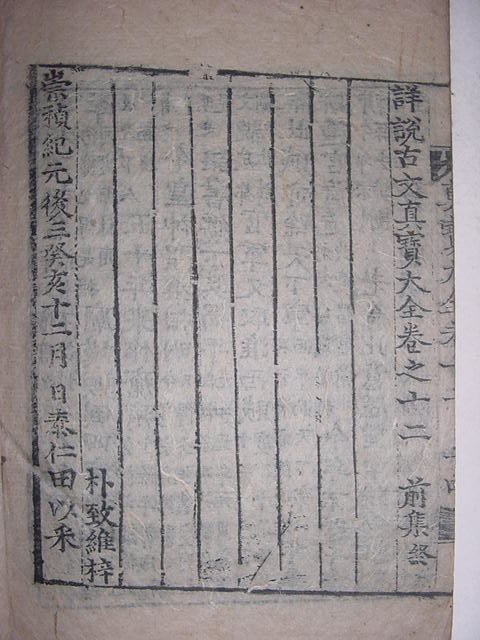 詳說古文真寶大全卷之十二　前集終
崇禎紀元後三癸亥十二月日泰仁田以釆
朴致維梓